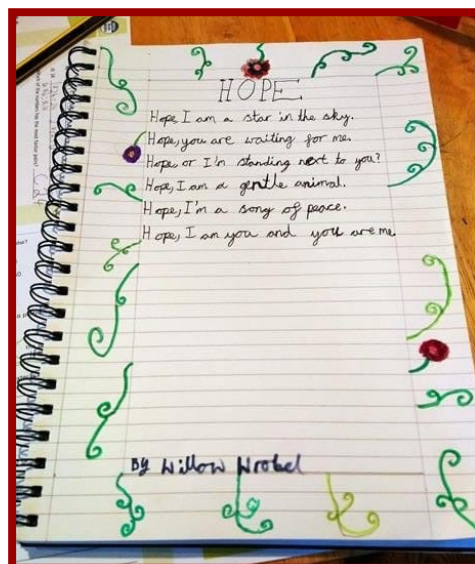 HOPE
Hope I am a star in the sky.
Hope, you are waiting for me.
Hope, or I'm standing next to you?
Hope, I am a gentle animal.
Hope, I'm a song of peace.
Hope, I am you and you are me
By Willow Wrobel